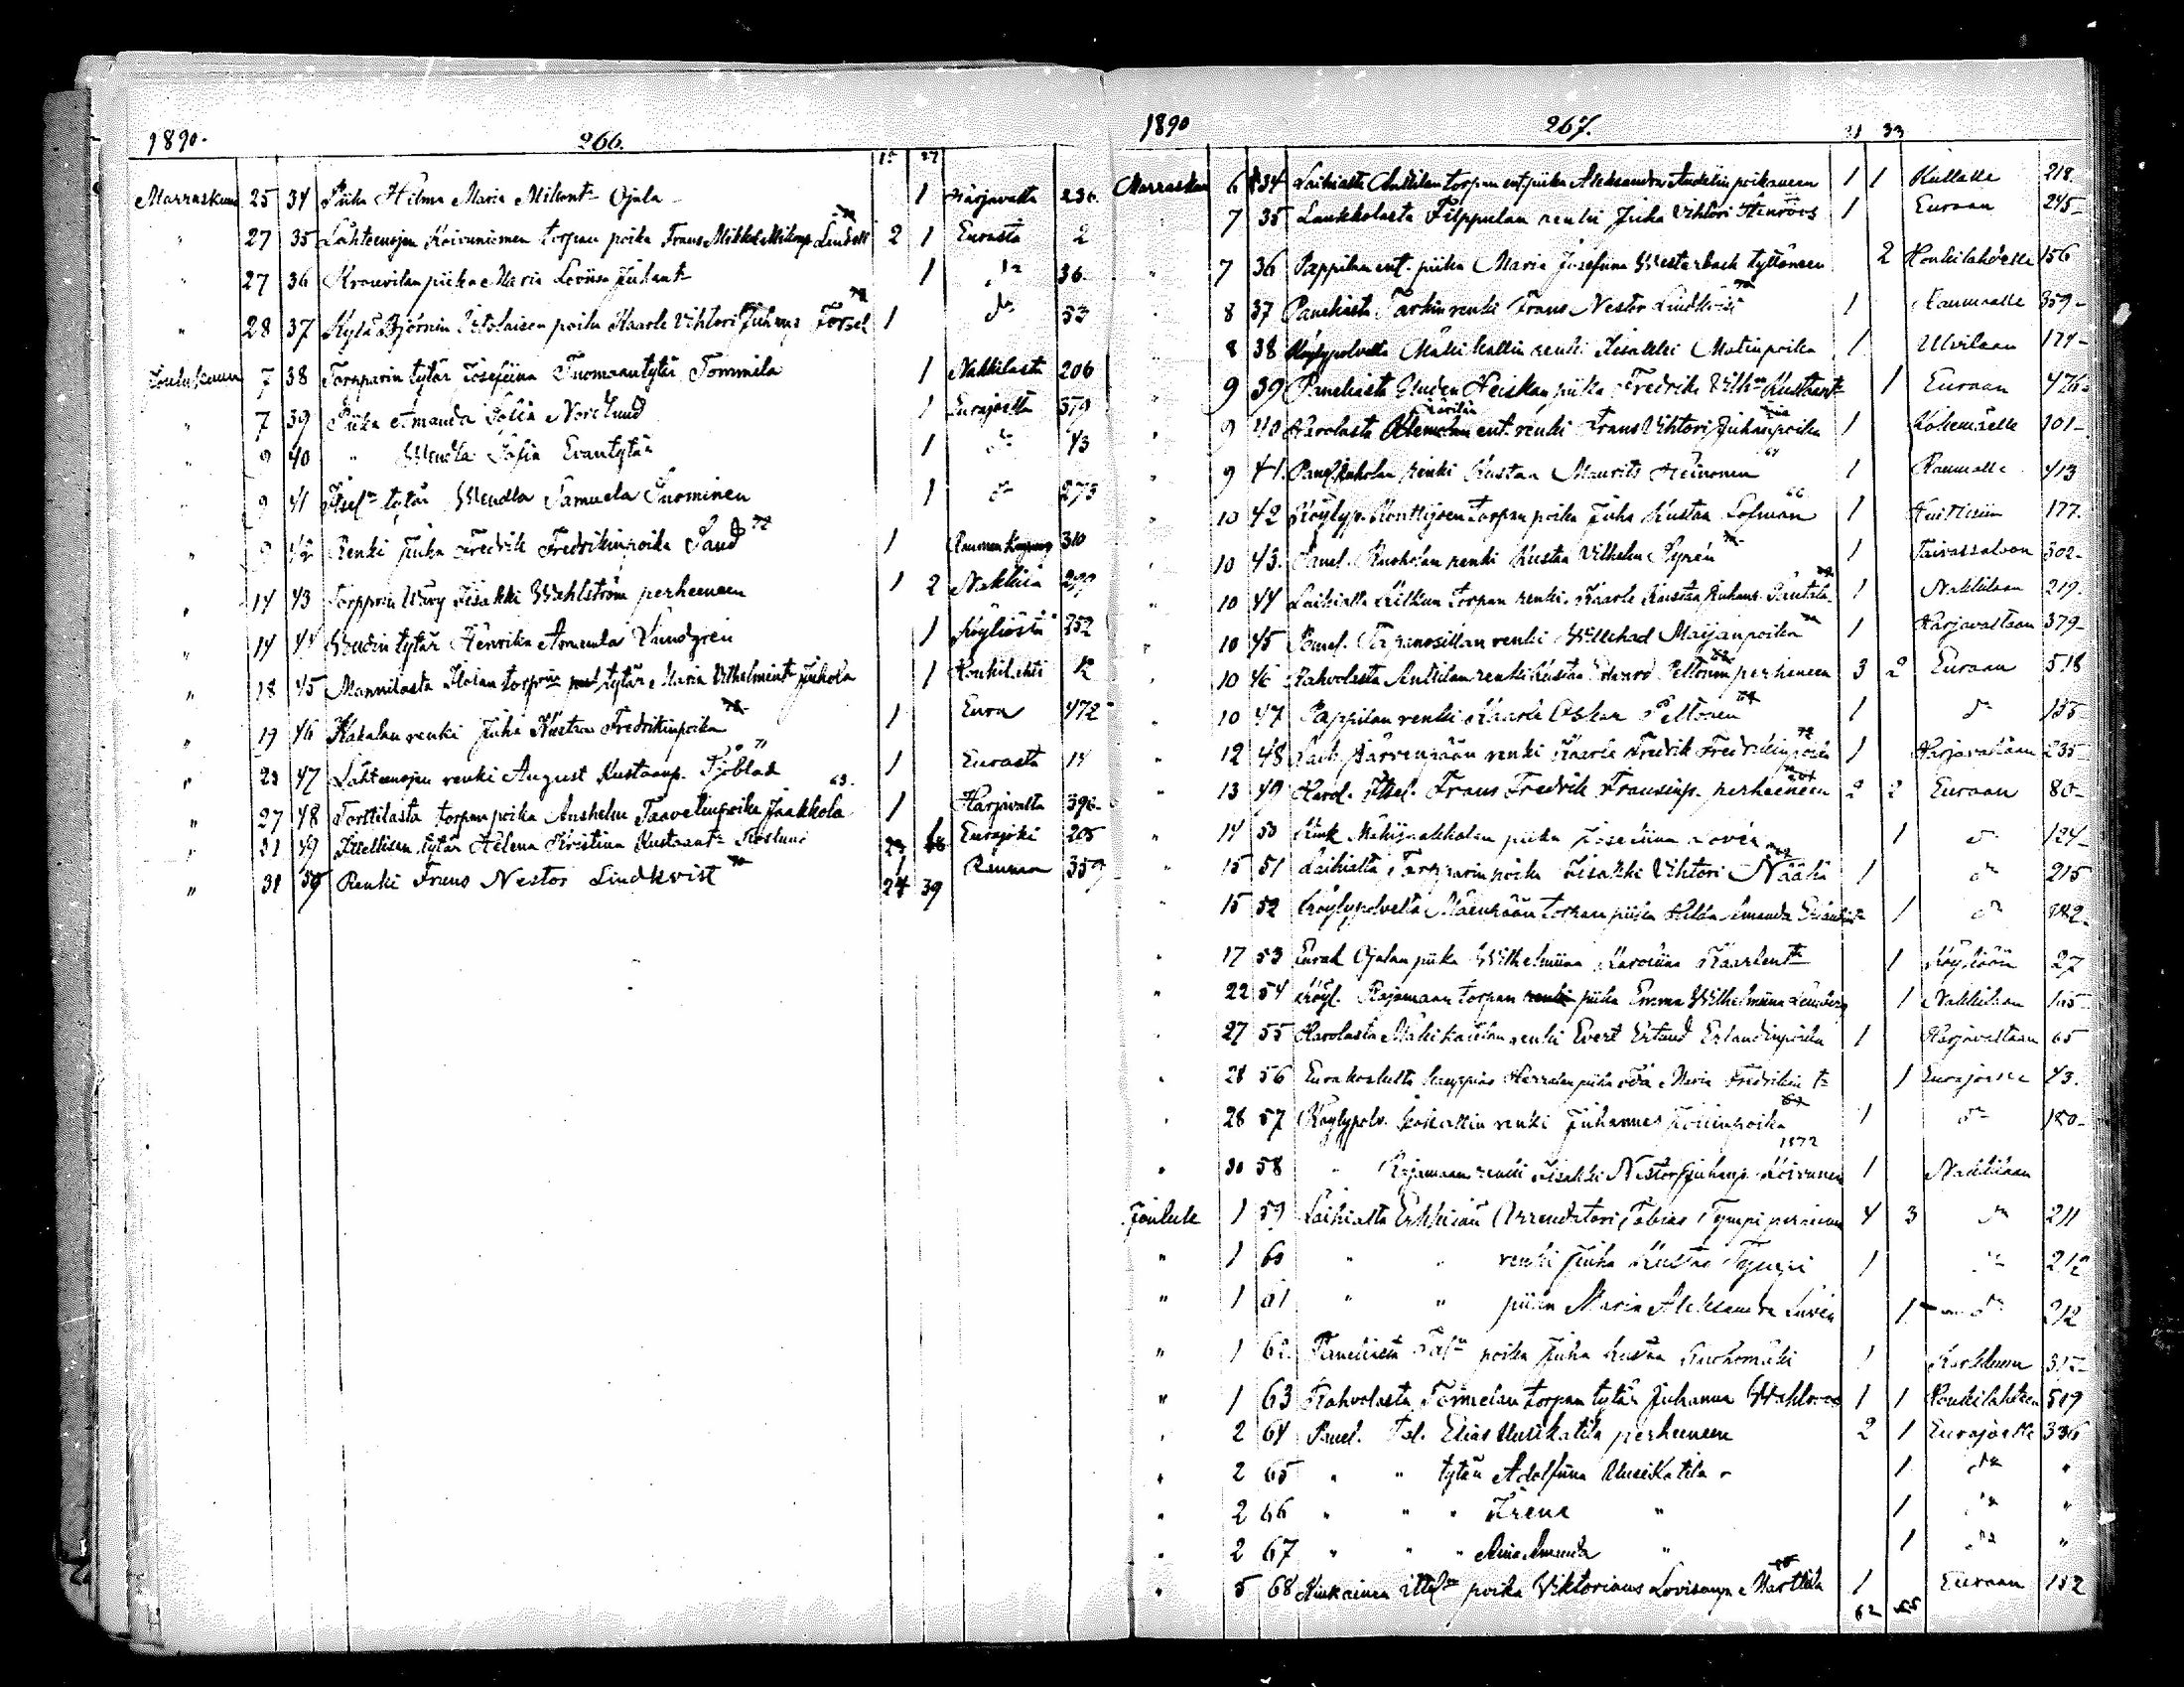 1890. 266. 15 27
Marraskuu 25 34 Piika Hilma Maria Mikont. Ojala 1 Harjavalta 236
" 27 35 Lähteenojan Koivuniemen torpan poika Frans Mikkel 2 1 Eurasta 2
" 27 36 piika Maria Loviisa Juhant. 1 dn 36
" 28 37 Kylä Björnin poika Kaarle Vihtori Juhanp. Forsel 1 dn 53
Joulukuun 7 38 Torpparin tytär Josefiina Tuomaantytär Tommila 1 Nakkilasta 206
" 7 39 Piika Amanda Sofia Nordlund 1 Eurajoelta 379
" 9 40 " Wendla Sofia Evantytär 1 dn 43
" 9 41 Itsel. tytär Wendla Samuela Suominen 1 dn 273
" 9 42 Renki Juha Fredrik Fredrikinpoika Sand 1 Rauman 310
" 14 43 Torppari Iisakki Wahlström perheeneen 1 2 Nakkila 299
" 14 44 Voudin tytär Henrika Amanda Lundgren 1 Köyliöstä 252
" 18 45 Mannilasta torpparin tytär Maria Vilhelmiint. Juhola 1 Honkilahti 12
" 19 46 Kakalan renki Juha Kustaa Fredrikinpoika 1 Eura 472
" 23 47 Lähteenojan renki August Kustaanp. Sjöblad 1 Eurasta 14
" 27 48 Torttilasta torpan poika Anshelm Taavetinpoika Jaakkola 63. 1 Harjavalta 396
" 31 49 Itsellisen tytär Helena Kristina Kustaant. 1 Eurajoki 205
" 31 50 Renki Frans Nestor Lindkvist 24 39 Rauma 359
1890 267. 21 33
Marraskuu 6 34 Laihialta Anttilan torpan ent. piika Aleksandra Andelin poikaneen 1 1 Kullalle 218
" 7 35 Laukkolasta Filppulan renki Juha Vihtori Stenroos 1 Euraan 245
" 7 36 Pappilan ent. piika Maria Josefiina Westerback tyttöneen 2 Honkilahdelle 156
" 8 37 Paneliasta Tarkin renki Frans Nestor Lindkvist 1 Raumalle 359
" 8 38 Köylypolvelta Mäki renki Iisakki Matinpoika 1 Ulvilaan 174
" 9 39 Paneliasta Uuden Heiskan piika Fredrika Vilh. Kustaant. 1 Euraan 476
" 9 40 Harolasta ent. renki Frans Vihtori Juhanpoika 1 Kokemäelle 101
" 9 41 Panel. renki Kustaa Maurits Heinonen 1 Raumalle 413
" 10 42 Köylyp. torpan poika Juha Kustaa Lofman 1 Huittisiin 177.
" 10 43. Panel. renki Kustaa Vilhelm Syrén 1 Taivassaloon 302
" 10 44 Laihialta torpan renki Kaarle Kustaa Juhanp. 1 Nakkilaan 219.
" 10 45 Panel. renki Willehad Maijanpoika 1 Harjavaltaan 379
" 10 46 Rahvolasta Anttilan renki Kustaa Edvard Peltonen perheineen 3 2 Euraan 518
" 10 47 Pappilan renki Kaarle Oskar Peltonen 1 dn 155
" 12 48 Laih. Järvenpään renki Kaarle Fredrik Fredrikinpoika 1 Harjavaltaan 235
" 13 49 Harol. Itsel. Frans Fredrik Fransinp. perheeneen 2 2 Euraan 80
" 14 50 Kiuk. Mäkijaakkolan piika Josefiina Lovén 1 dn 124
" 15 51 Laihialta Torpparin poika Iisakki Vihtori Nääki 1 dn 215
" 15 52 Köylypolvelta Mäenpään torpan piika Hilda Amanda 1 dn 182
" 17 53 Eurak. Ojalan piika Wilhelmiina Karoliina Kaarlent. 1 Köyliöön 27
" 22 54 Köyl. Rajamaan torpan piika Emma Wilhelmiina Lemberg 1 Nakkilaan 165
" 27 55 Harolasta Mäkikatilan renki Evert Erland Erlandinpoika 1 Harjavaltaan 65
" 28 56 Eurakoskelta kauppias piika Ida Maria Fredrikin t. 1 Eurajoelle 43.
" 28 57 Köylypolv. renki Juhannes 1 dn 180
" 30 58 " Rajamaan renki Iisakki Nestor Juhanp. Koivunen 1872 1 Nakkilaan
Joulule 1 59 Laihialta Erkkilän Arrendatori Tobias Tympi perineen 4 3 dn 211
" 1 60 " " renki Juha Kustaa Tympi 1 dn 212
" 1 61 " " piika Maria Aleksandra Lovén 1 dn 212
" 1 62. Paneliasta Tal. poika Juha Kustaa 1 317
" 1 63 Rahvolasta Tommelan torpan tytär Juhanna Wahlroos 1 1 Honkilahteen 519
" 2 64 Panel. Tal. Elias Uusikatila perheeneen 2 1 Eurajoelle 336
" 2 65 " " tytär Adolfiina Uusikatila 1 dn "
" 2 66 " " " Irene " 1 dn "
" 2 67 " " " Aina Amanda " 1 dn "
" 5 68 Kiukainen ittel. poika Viktorianus Lovisanp. Marttila 1 Euraan 152
62 55